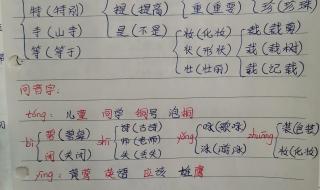 特(特别) 提(提高) 重(重要) 珍(珍珠)
寺(山寺) 是(不是) 妆(化妆) 裁(裁剪)
等(等于) 状(形状) 栽(栽树)
壮(壮丽) 载(记载)
同音字:
tóng: 儿童 同学 铜号 泡桐
bì 碧(碧绿) shī 诗(古诗) yǒng 咏(歌咏) zhuāng 装(包装)
闭(关闭) 师(老师) 泳(游泳) 妆(化妆)
失(失去)
yīng: 黄莺 英语 应该 雄鹰